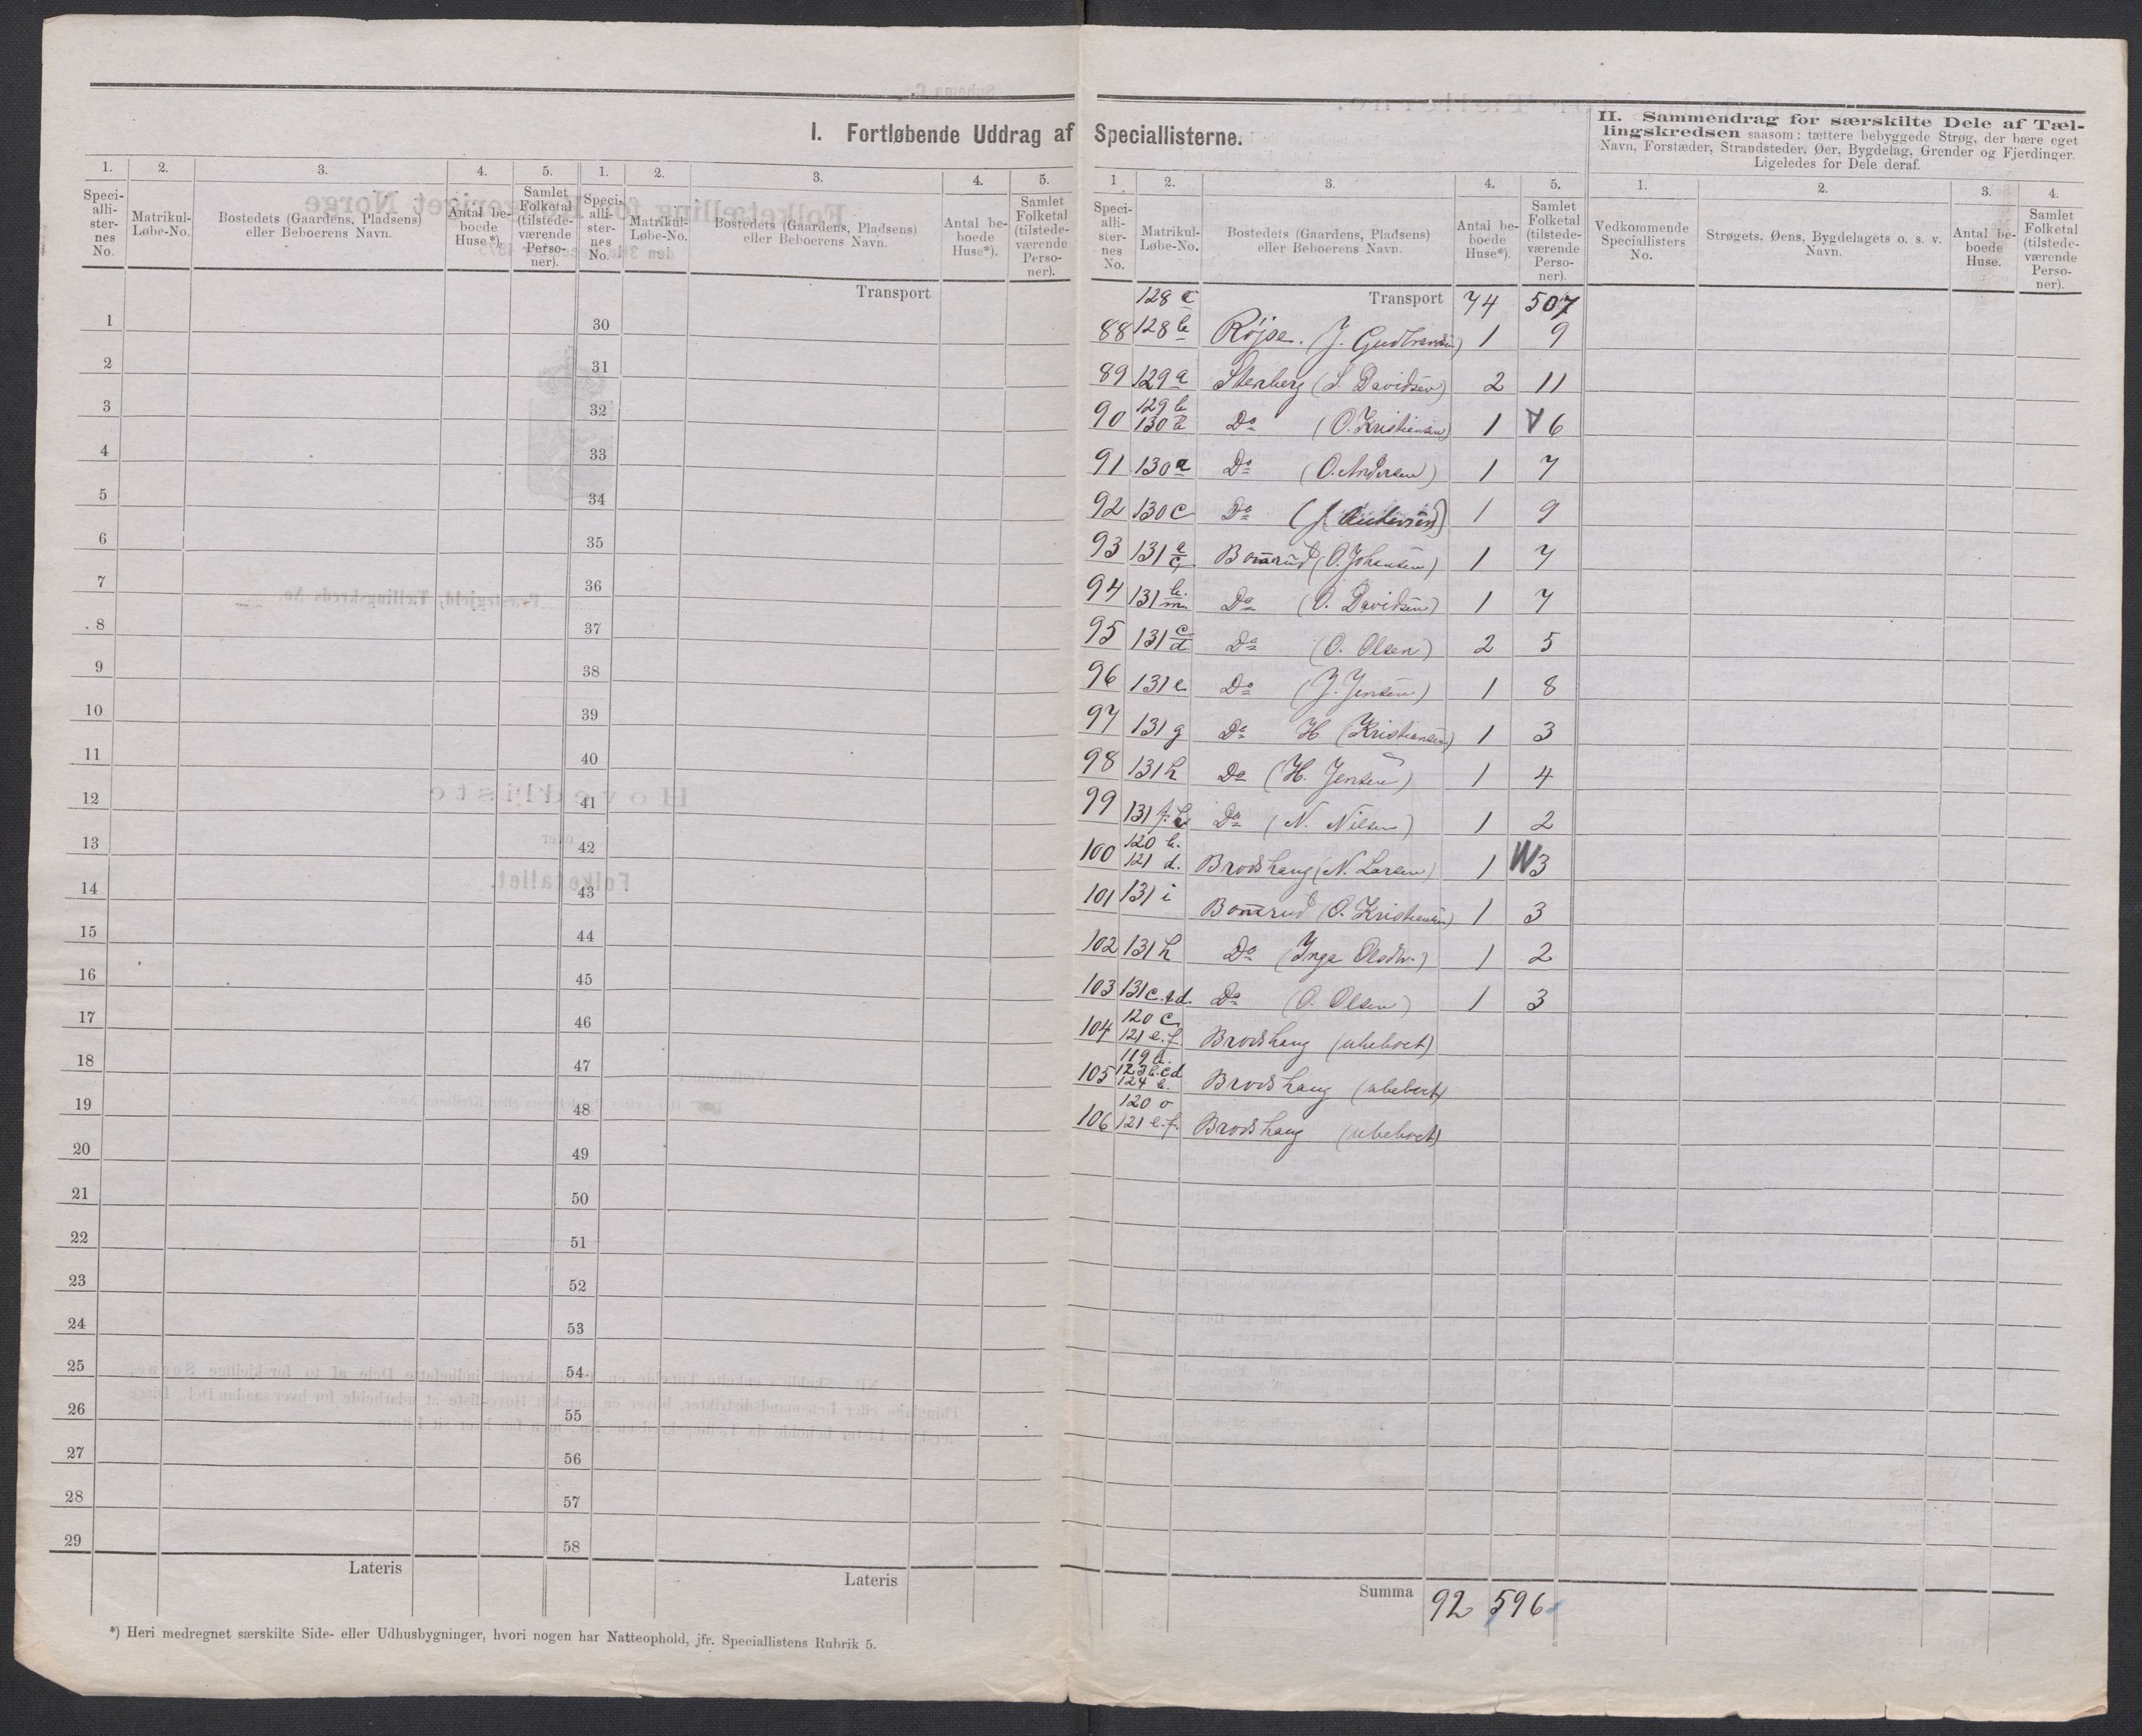 I. Fortløbende Uddrag af Speciallisterne.
II. Sammendrag for særskilte Dele af Tæl-
lingskredsen saasom: tættere bebyggede Strøg, der bære eget
Navn, Forstæder, Strandsteder, Øer, Bygdelag, Grender og Fjerdinger.
Ligeledes for Dele deraf.
1. 2. 3. 4. 5. 1. 2. 3. 4. 5.
Speci-
alli-
ster-
nes
No.
Matrikul-
Løbe-No.
Bostedets (Gaardens, Pladsens)
eller Beboerens Navn.
Antal be-
boede
Huse*).
Samlet
Folketal
(tilstede-
værende
Perso-
ner).
Speci-
alli-
ster-
nes
No.
Matrikul-
Løbe-No.
Bostedets (Gaardens, Pladsens)
eller Beboerens Navn.
Antal be-
boede
Huse*).
Samlet
Folketal
(tilstede-
værende
Perso-
ner).
Transport
1 30
2 31
3 32
4 33
5 34
6 35
7 36
8 37
9 38
10 39
11 40
12 41
13 42
14 43
15 44
16 45
17 46
18 47
19 48
20 49
21 50
22 51
23 52
24 53
25 54
26 55
27 56
28 57
29 58
Lateris Lateris
*) Heri medregnet særskilte Side- eller Udhusbygninger, hvori nogen har Natteophold, jfr. Speciallistens Rubrik 5.
1 2. 3. 4. 5.
Speci-
alli-
ster-
nes
No.
Matrikul-
Løbe-No.
Bostedets (Gaardens, Pladsens)
eller Beboerens Navn.
Antal be-
boede
Huse*).
Samlet
Folketal
(tilstede-
værende
Perso-
ner).
128 c Transport 74 507
88 128 b Röjse. (J. Gudbrandsen) 1 9
89 129 a Stenberg (S. Davidsen) 2 11
129 b
90 130 b Do (O. Kristiansen) 1 6
91 130 a Do (O. Andersen) 1 7
92 130 c Do (J. Andersen) 1 9
93 131 a Bomrud (O. Johansen) 1 7
94 131 b m. Do (O. Davidsen) 1 7
95 131 c d Do (O. Olsen) 2 5
96 131 e Do (J. Jensen) 1 8
97 131 g Do H (Kristiansen) 1 3
98 131 h Do (H. Jensen) 1 4
99 131 f. Do (N. Nilsen) 1 2
120 b.
100 121 d. Brodshaug (N. Larsen) 1 3
101 131 i Bomrud (O. Kristiansen) 1 3
102 131 h Do (Inga Olsdtr.) 1 2
103 131 c. d. Do (O. Olsen) 1 3
120 c
104 121 e. f. Brodshaug (ubeboet)
119 b.
123 b. c d
105 124 b. Brodshaug (ubeboet)
120
106 121 e. f. Brodshaug (ubeboet)
Summa 92 596
1. 2. 3. 4.
Vedkommende
Speciallisters
No.
Strøgets, Øens, Bygdelagets o. s. v.
Navn.
Antal be-
boede
Huse.
Samlet
Folketal
(tilstede-
værende
Perso-
ner).